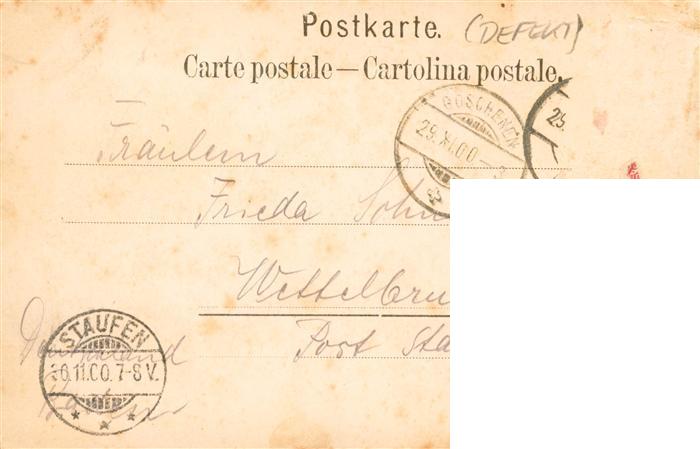 Postkarte. (DEFEKT)
Carte postale — Cartolina postale.
GÖSCHENEN
29.XI.00
25.
Fräulein
Frieda
Wettelbru
Post Sta
STAUFEN
Deutschland
6.11.00.7-8 V.